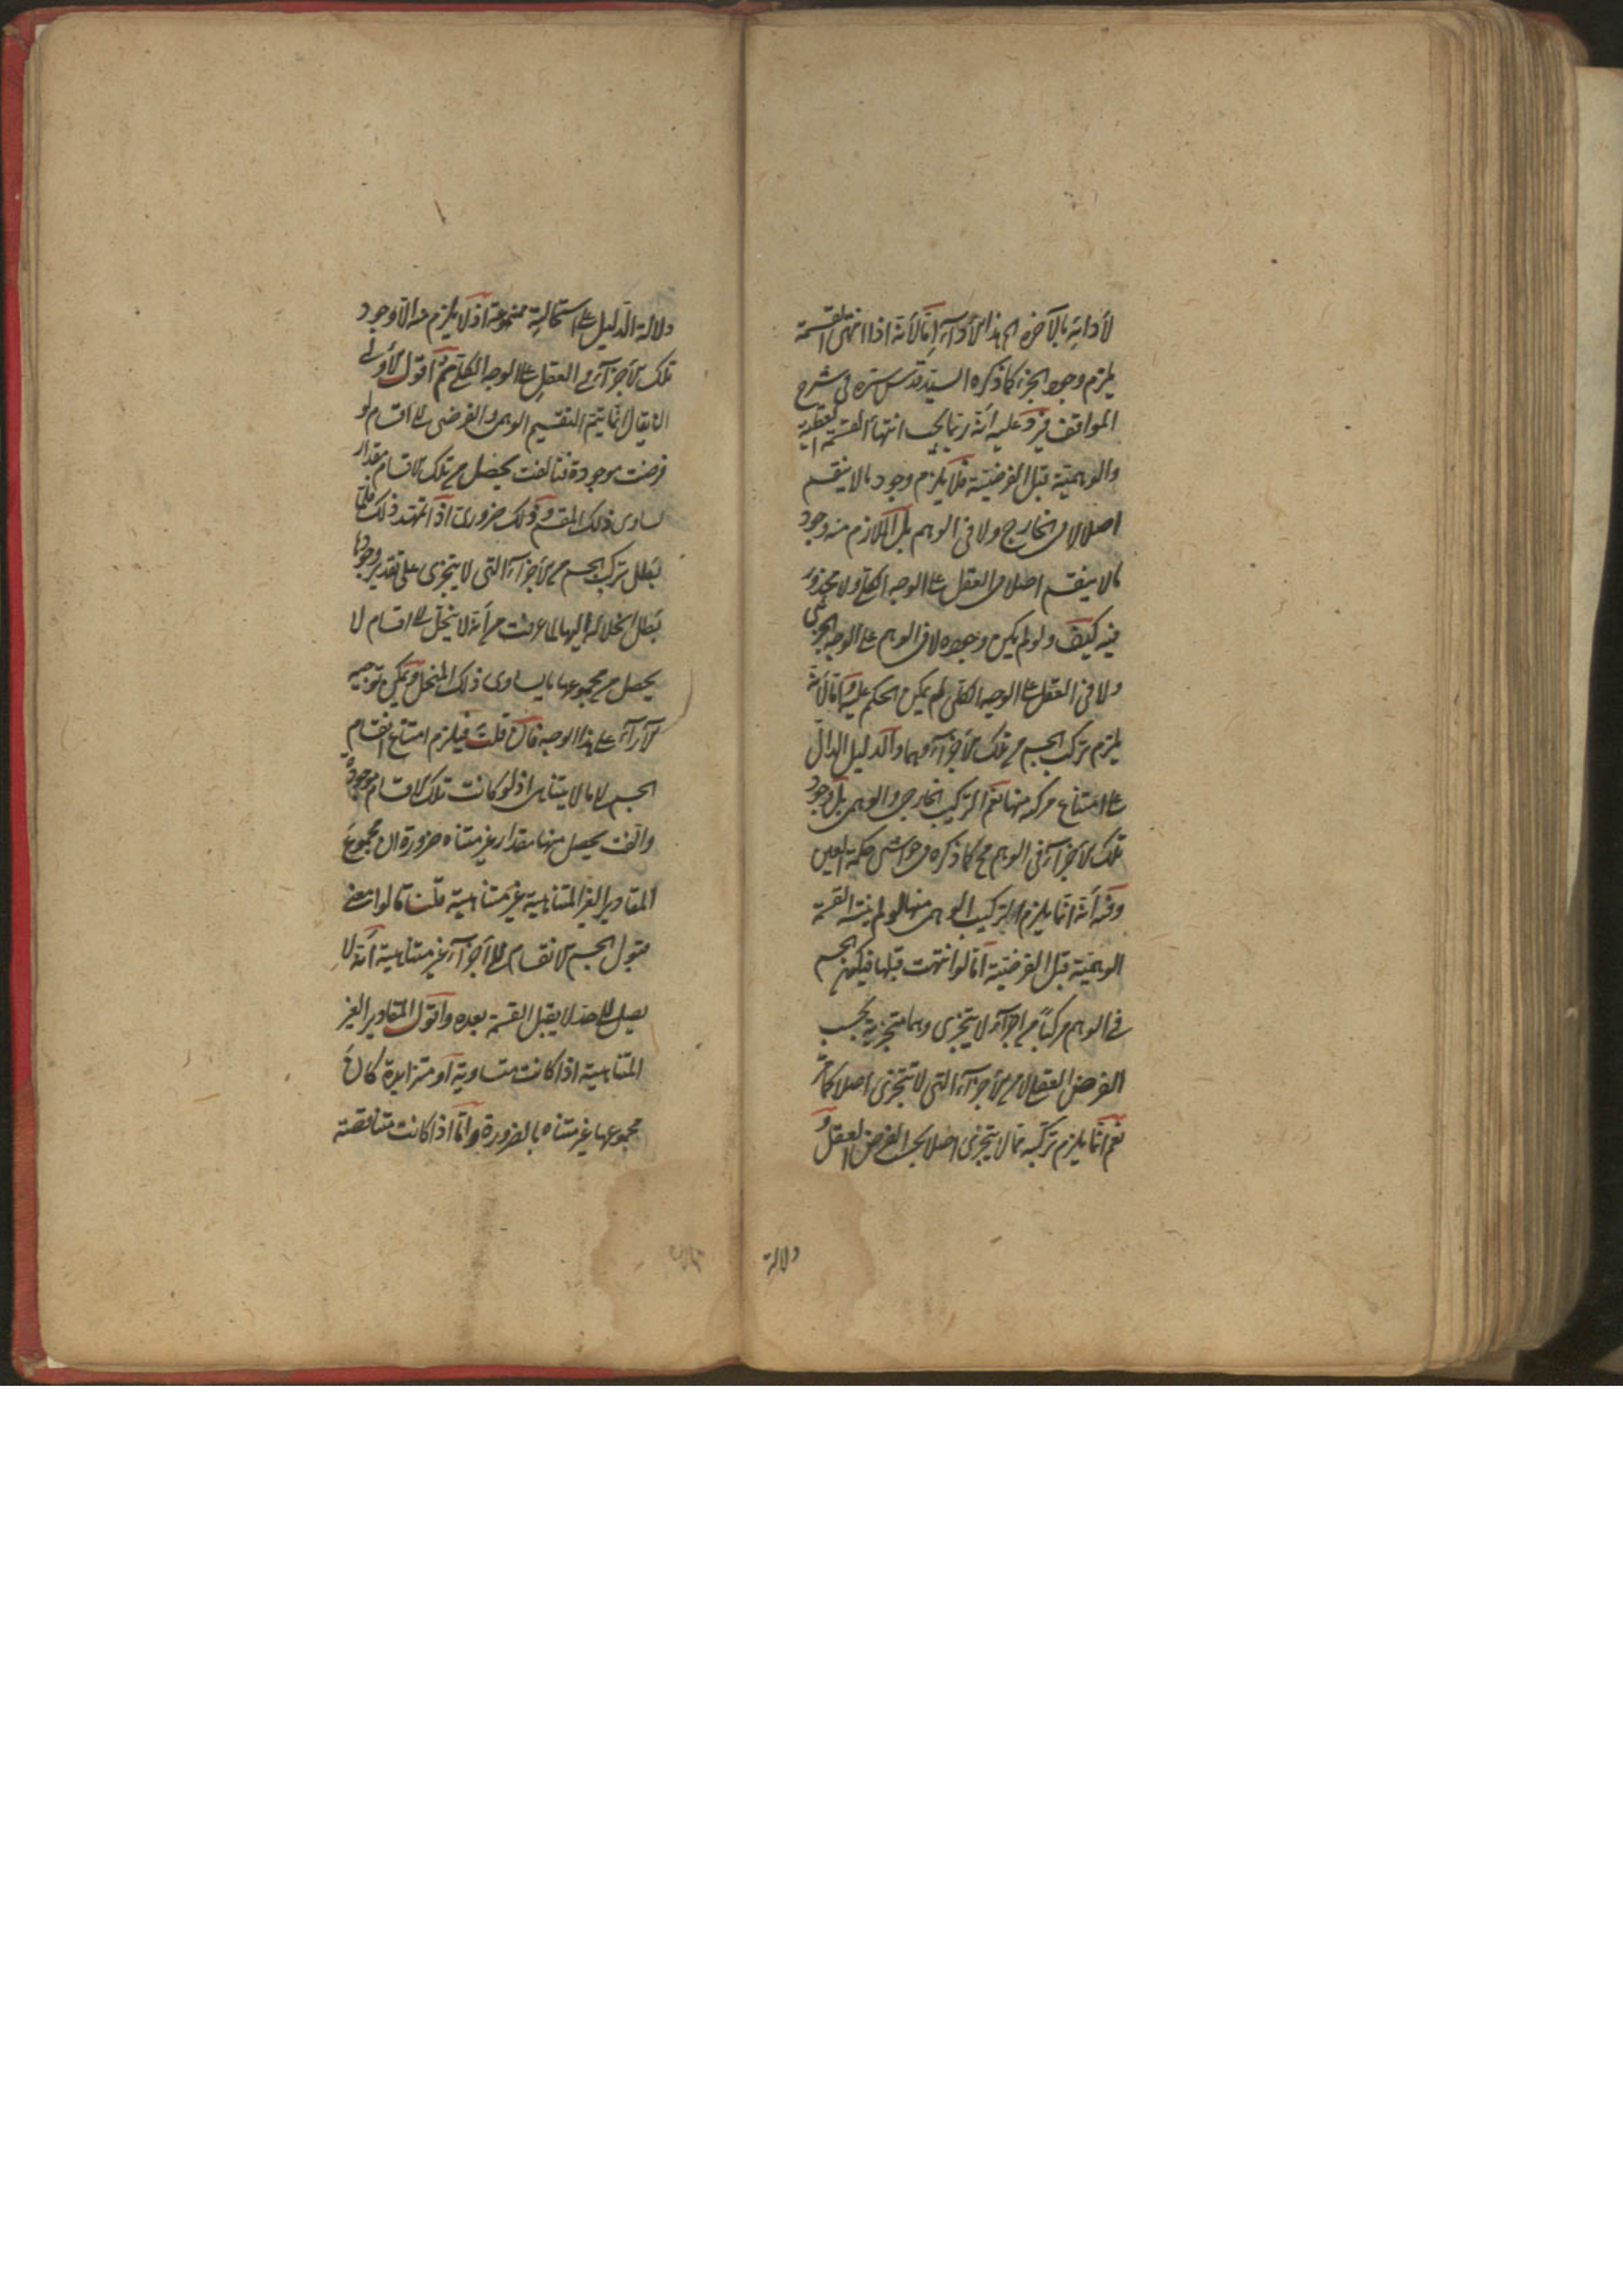 لأدائه بالآخرة الى هذا الأداء إما لأنه اذا انتهى القسمة
يلزم وجود الجزء كما ذكره السيد قدس سره في شرح
المواقف فيرد عليه أنه ربما يجب انتهاء القسمة العقلية
والوهمية قبل الفرضية فلا يلزم وجود ما لا ينقسم
اصلا لا في الخارج ولا في الوهم بل اللازم منه وجود
ما لا ينقسم اصلا في العقل على الوجه الكلي ولا محذور
فيه كيف ولو لم يكن وجوده لا في الوهم على الوجه الجزئي
ولا في العقل على الوجه الكلي لم يمكن الحكم عليه واما لأنه
يلزم تركب الجسم من تلك الأجزاء وهما والدليل الدال
على امتناع تركبه منها نعم التركيب الخارجي والوهمي بل وجود
تلك الأجزاء في الوهم مح كما ذكره في حواشي حكمة العين
وفيه أنه انما يلزم التركيب الوهمي منها لو لم ينته القسمة
الوهمية قبل الفرضية اما لو انتهت قبلها فيكون الجسم
في الوهم مركبا من اجزاء لا يتجزى وهما متجزية بحسب
الفرض العقلي لا من الأجزاء التي لا تتجزى اصلا كما مر
نعم انما يلزم تركبه مما لا يتجزى اصلا بحسب الفرض العقلي و
دلالة
دلالة الدليل على استحالته ممنوعة اذ لا يلزم منه الا وجود
تلك الأجزاء في العقل على الوجه الكلي ثم اقول الأولى
ان يقال انما يتم التقسيم الوهمي والفرضي الى اقسام لو
فرضت موجودة فتألفت يحصل من تلك الاقسام مقدار
يساوى ذلك المقسم وذلك ضروري اذا تمهد ذلك فلما
بطل تركب الجسم من الأجزاء التي لا يتجزى على تقدير وجودها
بطل انحلاله اليها لما عرفت من أنه لا ينحل الى اقسام لا
يحصل من مجموعها ما يساوى ذلك المنحل ويمكن توجيه
الآراء على هذا الوجه فان قلت فيلزم امتناع انقسام
الجسم الى ما لا يتناهى اذ لو كانت تلك الاقسام موجودة
والفت يحصل منها مقدار غير متناه ضرورة ان مجموع
المقادير الغير المتناهية غير متناهية قلت قالوا معنى
قبول الجسم الانقسام الى أجزاء غير متناهية أنه لا
يصل الى حد لا يقبل القسمة بعده واقول المقادير الغير
المتناهية اذا كانت متساوية او متزايدة كان
مجموعها غير متناه بالضرورة واما اذا كانت متناقصة